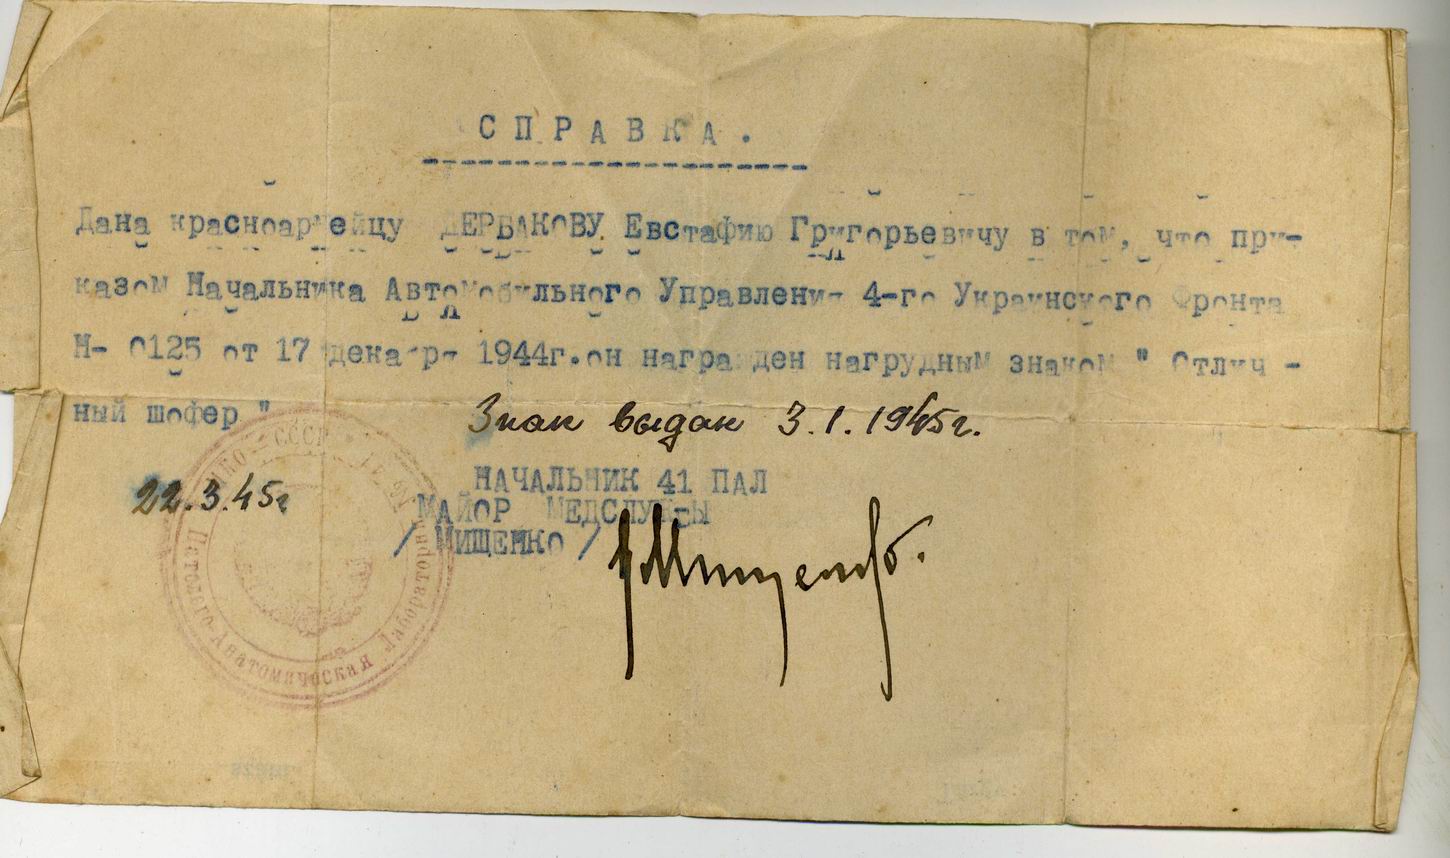 СПРАВКА.
Дана красноармейцу ДЕРБАКОВУ Евстафию Григорьевичу в том, что при-
казом Начальника Автомобильного Управления 4-го Украинского Фронта
Н- 0125 от 17 декабря 1944г.он награжден нагрудным знаком " Отлич -
ный шофер "
Знак выдан 3.1.1945г.
22.3.45г
НАЧАЛЬНИК 41 ПАЛ
МАЙОР МЕДСЛУЖБЫ
/ МИЩЕНКО /
НКО СССР
Патолого-Анатомическая Лаборатория